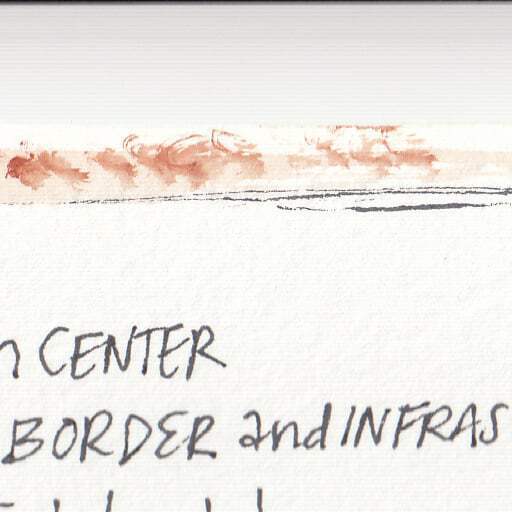 n CENTER
BORDER and INFRAS